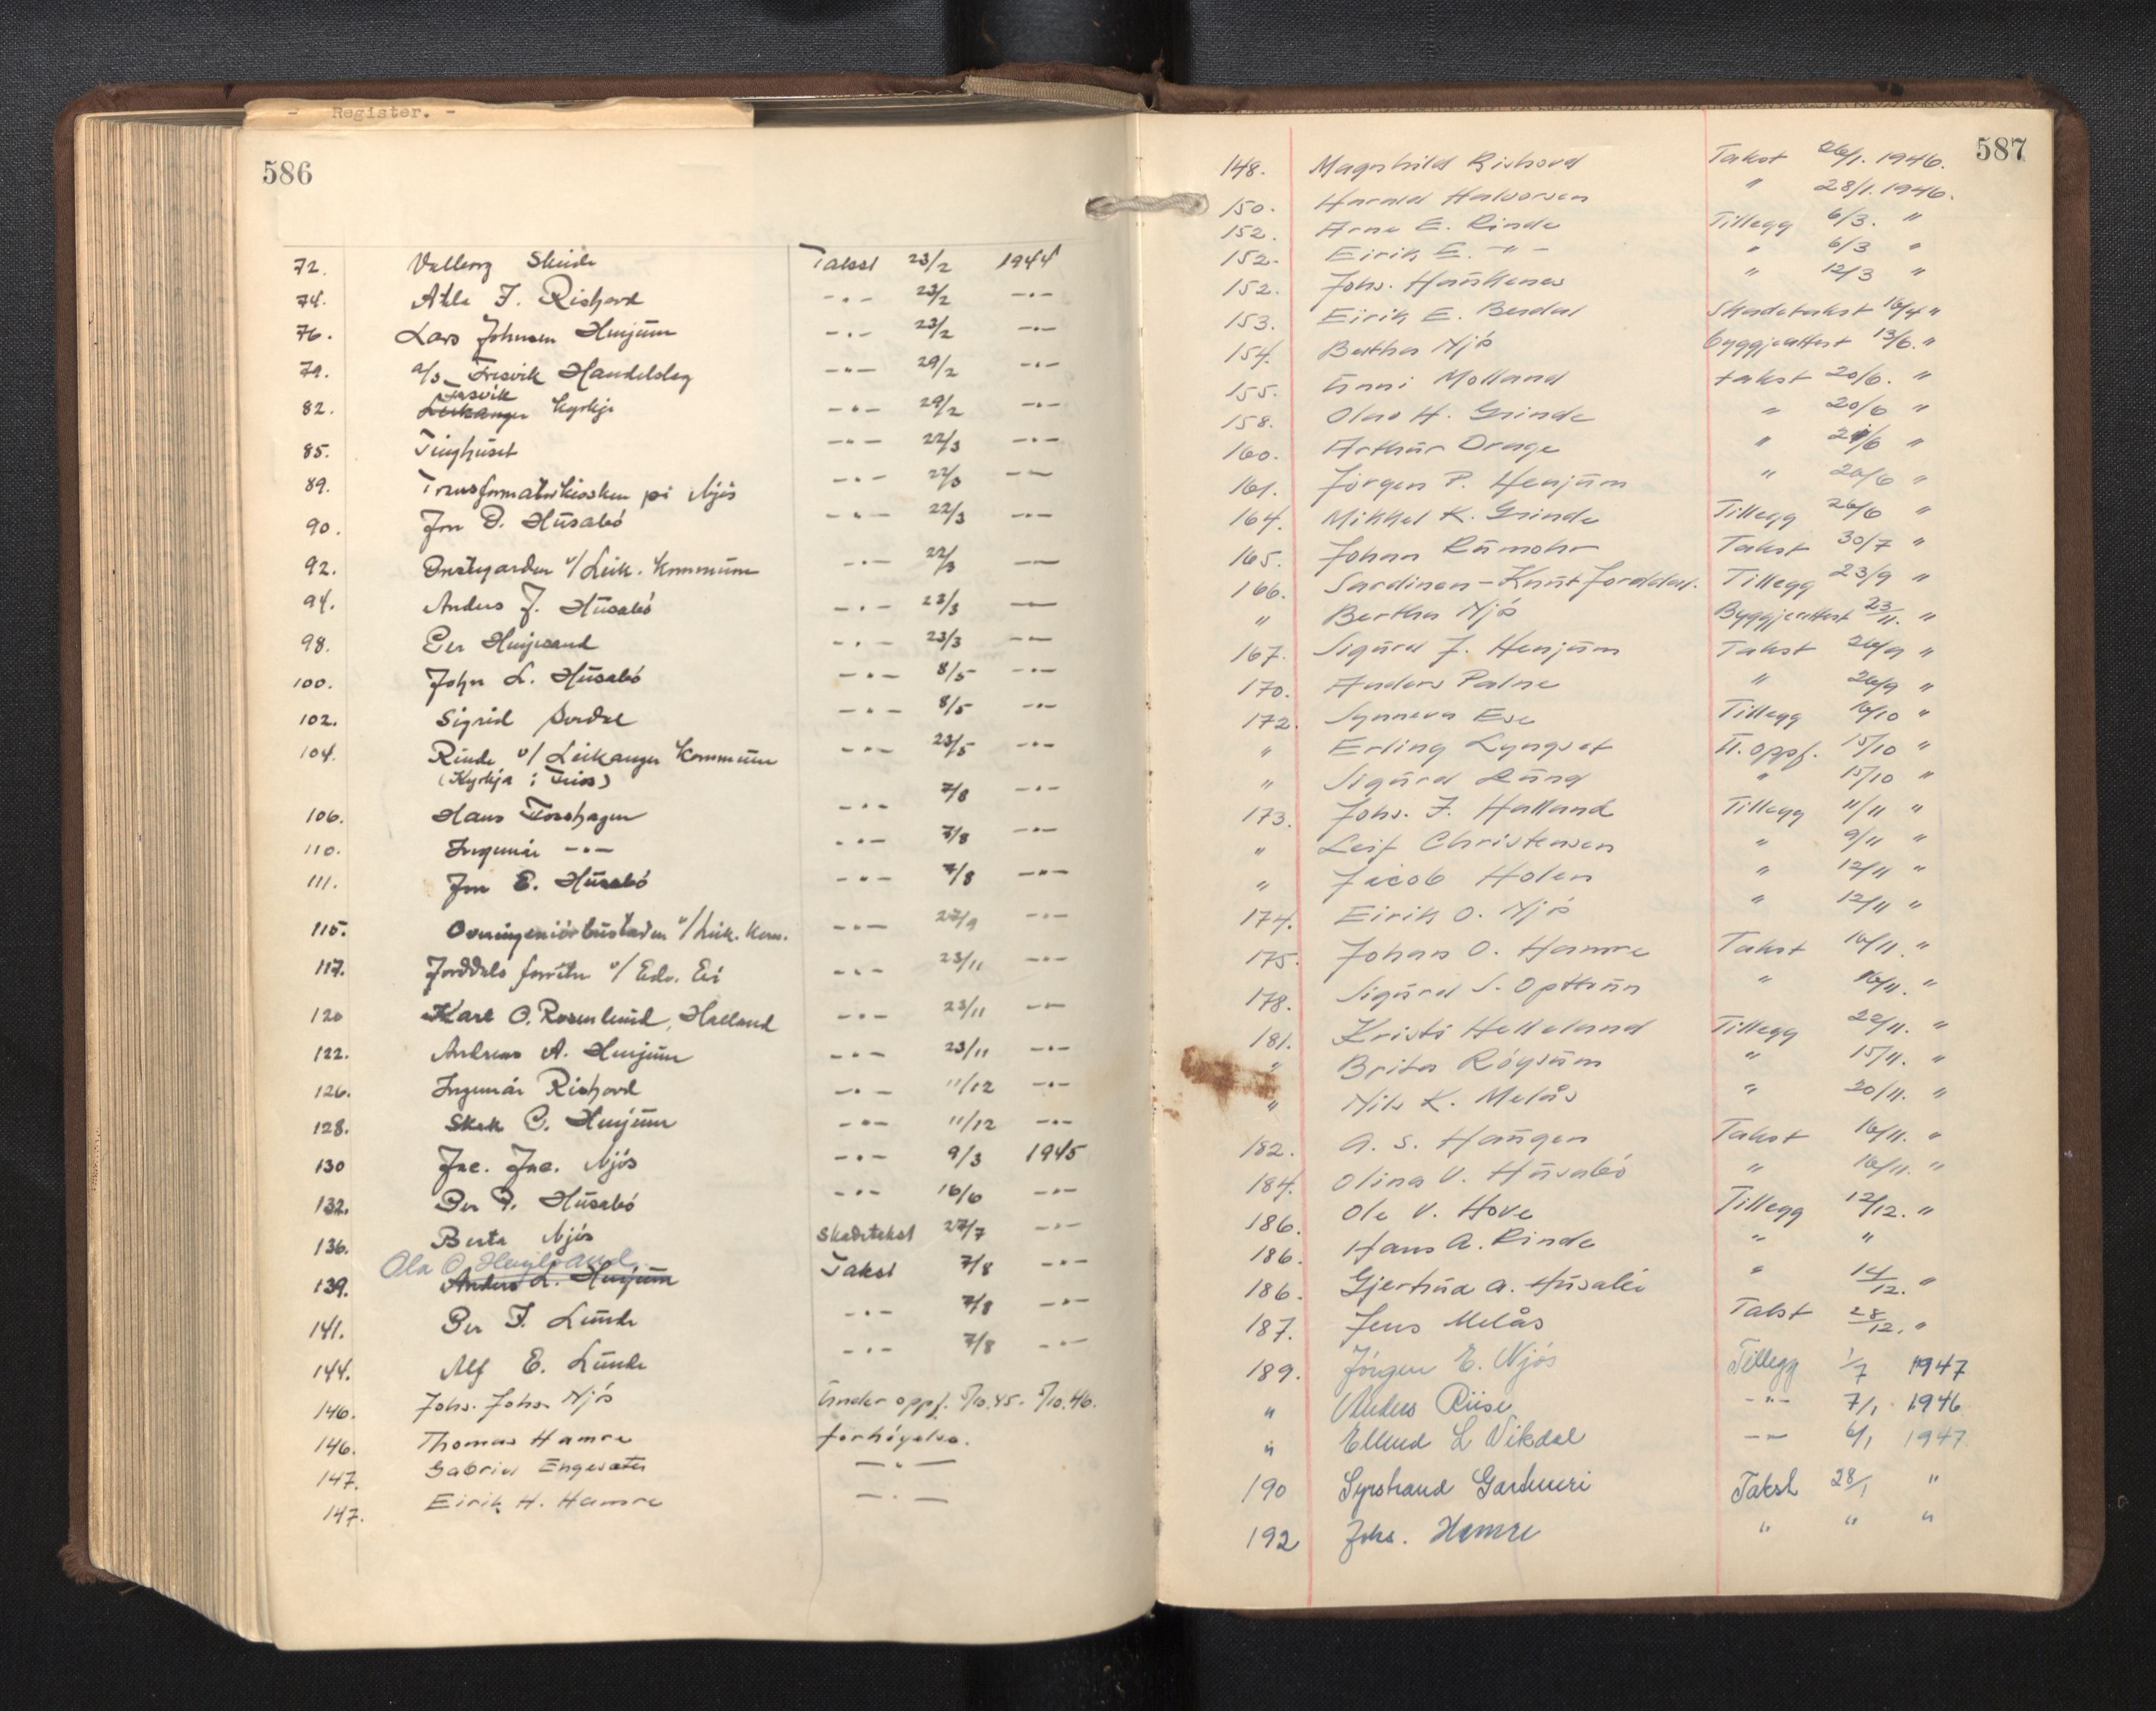 - Register. -
586
72. Valborg Skinde Takst 23/2 1944
74. Atle J. Rishovd -"- 23/2 -"-
76. Lars Johnsen Henjum -"- 23/2 -"-
79. a/s Fresvik Handelslag -"- 29/2 -"-
Fresvik
82. Leikanger Kyrkje -"- 29/2 -"-
85. Tinghuset -"- 22/3 -"-
89. Transformatorkiosken på Njøs -"- 22/3 -"-
90. Jon D. Husabø -"- 22/3 -"-
92. Prestegarden v/ Leik. Kommune -"- 22/3 -"-
94. Anders J. Husabø -"- 23/3 -"-
98. Per Henjesand -"- 23/3 -"-
100. John L. Husabø -"- 8/5 -"-
102. Sigrid -"- 8/5 -"-
104. Rinde v/ Leikanger Kommune -"- 23/5 -"-
(Kyrkja i Frios)
106. Hans Trosshagen -"- 7/8 -"-
110. Ingemår -"- -"- 7/8 -"-
111. Jon E. Husabø -"- 7/8 -"-
115. Overingeniørbustaden v/ Leik. Kom. -"- 27/9 -"-
117. Jorddals forretn. v/ Edv. Ei -"- 23/11 -"-
120 Karl O. Rosenlund, Halland -"- 23/11 -"-
122. Andreas A. Henjum -"- 23/11 -"-
126. Ingemår Rishovd -"- 11/12 -"-
128. Skak C. Henjum -"- 11/12 -"-
130 Jac. Jac. Njøs -"- 9/3 1945
132. Per P. Husabø -"- 16/6 -"-
136. Berta Njøs Skadetakst 27/7 -"-
Ola O. Henjesand
139. Anders L. Henjum Takst 7/8 -"-
141. Per J. Lunde -"- 7/8 -"-
144. Alf E. Lunde -"- 7/8 -"-
146. Johs. Johs. Njøs Under oppf. 5/10.45 - 5/10.46.
146. Thomas Hamre forhøyelse.
147. Gabriel Engesæter -"-
147. Eirik H. Hamre -"-
587
148. Magnhild Rishovd Takst 26/1. 1946.
150. Harald Halvorsen " 28/1. 1946.
152. Arne E. Rinde Tillegg 6/3. "
152. Eirik E. -"- " 6/3 "
152. Johs. Haukenes " 12/3 "
153. Eirik E. Berdal Skadetakst 16/4 "
154. Bertha Njøs byggjeattest 13/6. "
155. Enni Molland takst 20/6. "
158. Olav H. Grinde " 20/6 "
160. Arthur Drage " 21/6 "
161. Jørgen P. Henjum " 20/6 "
164. Mikkel K. Grinde Tillegg 26/6 "
165. Johan Rumohr Takst 30/7 "
166. Sardinen - Knut Jorddal. Tillegg 23/9 "
" Bertha Njøs Byggjeattest 23/11. "
167. Sigurd J. Henjum Takst 26/9 "
170. Anders Palne " 26/9 "
172. Synneva Ese Tillegg 16/10 "
" Erling Lyngset U. oppf. 15/10 "
" Sigurd Lund " 15/10 "
173. Johs. J. Halland Tillegg 11/11 "
" Leif Christensen " 9/11 "
" Jacob Holen " 12/11 "
174. Eirik O. Njøs " 12/11 "
175. Johan O. Hamre Takst 16/11. "
178. Sigurd S. Opthun " 16/11. "
181. Kristi Helleland Tillegg 22/11. "
" Brita Røysum " 15/11. "
" Nils K. Melås " 20/11. "
182. A. S. Haugen Takst 16/11. "
184. Olina V. Husabø " 16/11. "
186. Ole V. Hove Tillegg 12/12. "
186. Hans A. Rinde " "
186. Gjertrud A. Husabø " 14/12. "
187. Jens Melås Takst 28/12. "
189. Jørgen E. Njøs Tillegg 1/7 1947
" Anders Riise -"- 7/1. 1946
" Ellend L Vikdal -"- 6/1 1947
190 Syrstrand Gartneri Takst 28/1 "
192 Johs. Hamre " " "